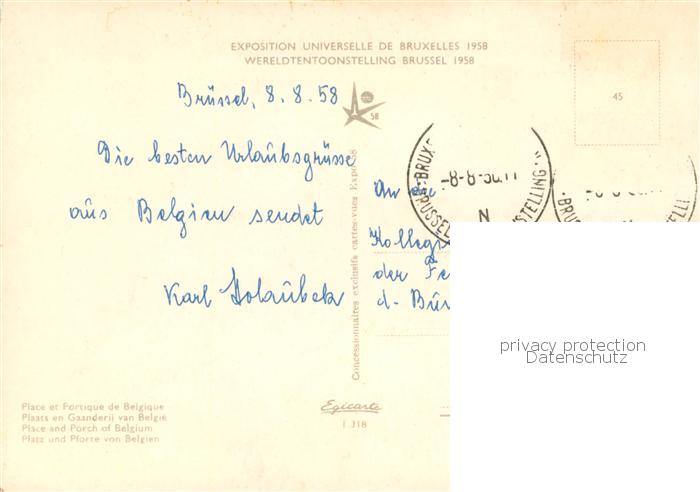 EXPOSITION UNIVERSELLE DE BRUXELLES 1958
WERELDTENTOONSTELLING BRUSSEL 1958
45
Brüssel, 8.8.58
58
Die besten Urlaubsgrüsse
aus Belgien sendet
Karl
Concessionnaires exclusifs cartes-vues Expo 58
An die
der
d.
-8-8-
N
Place et Portique de Belgique
Plaats en Gaanderij van België
Place and Porch of Belgium
Platz und Pforte von Belgien
Egicarte
1.318
privacy protection
Datenschutz